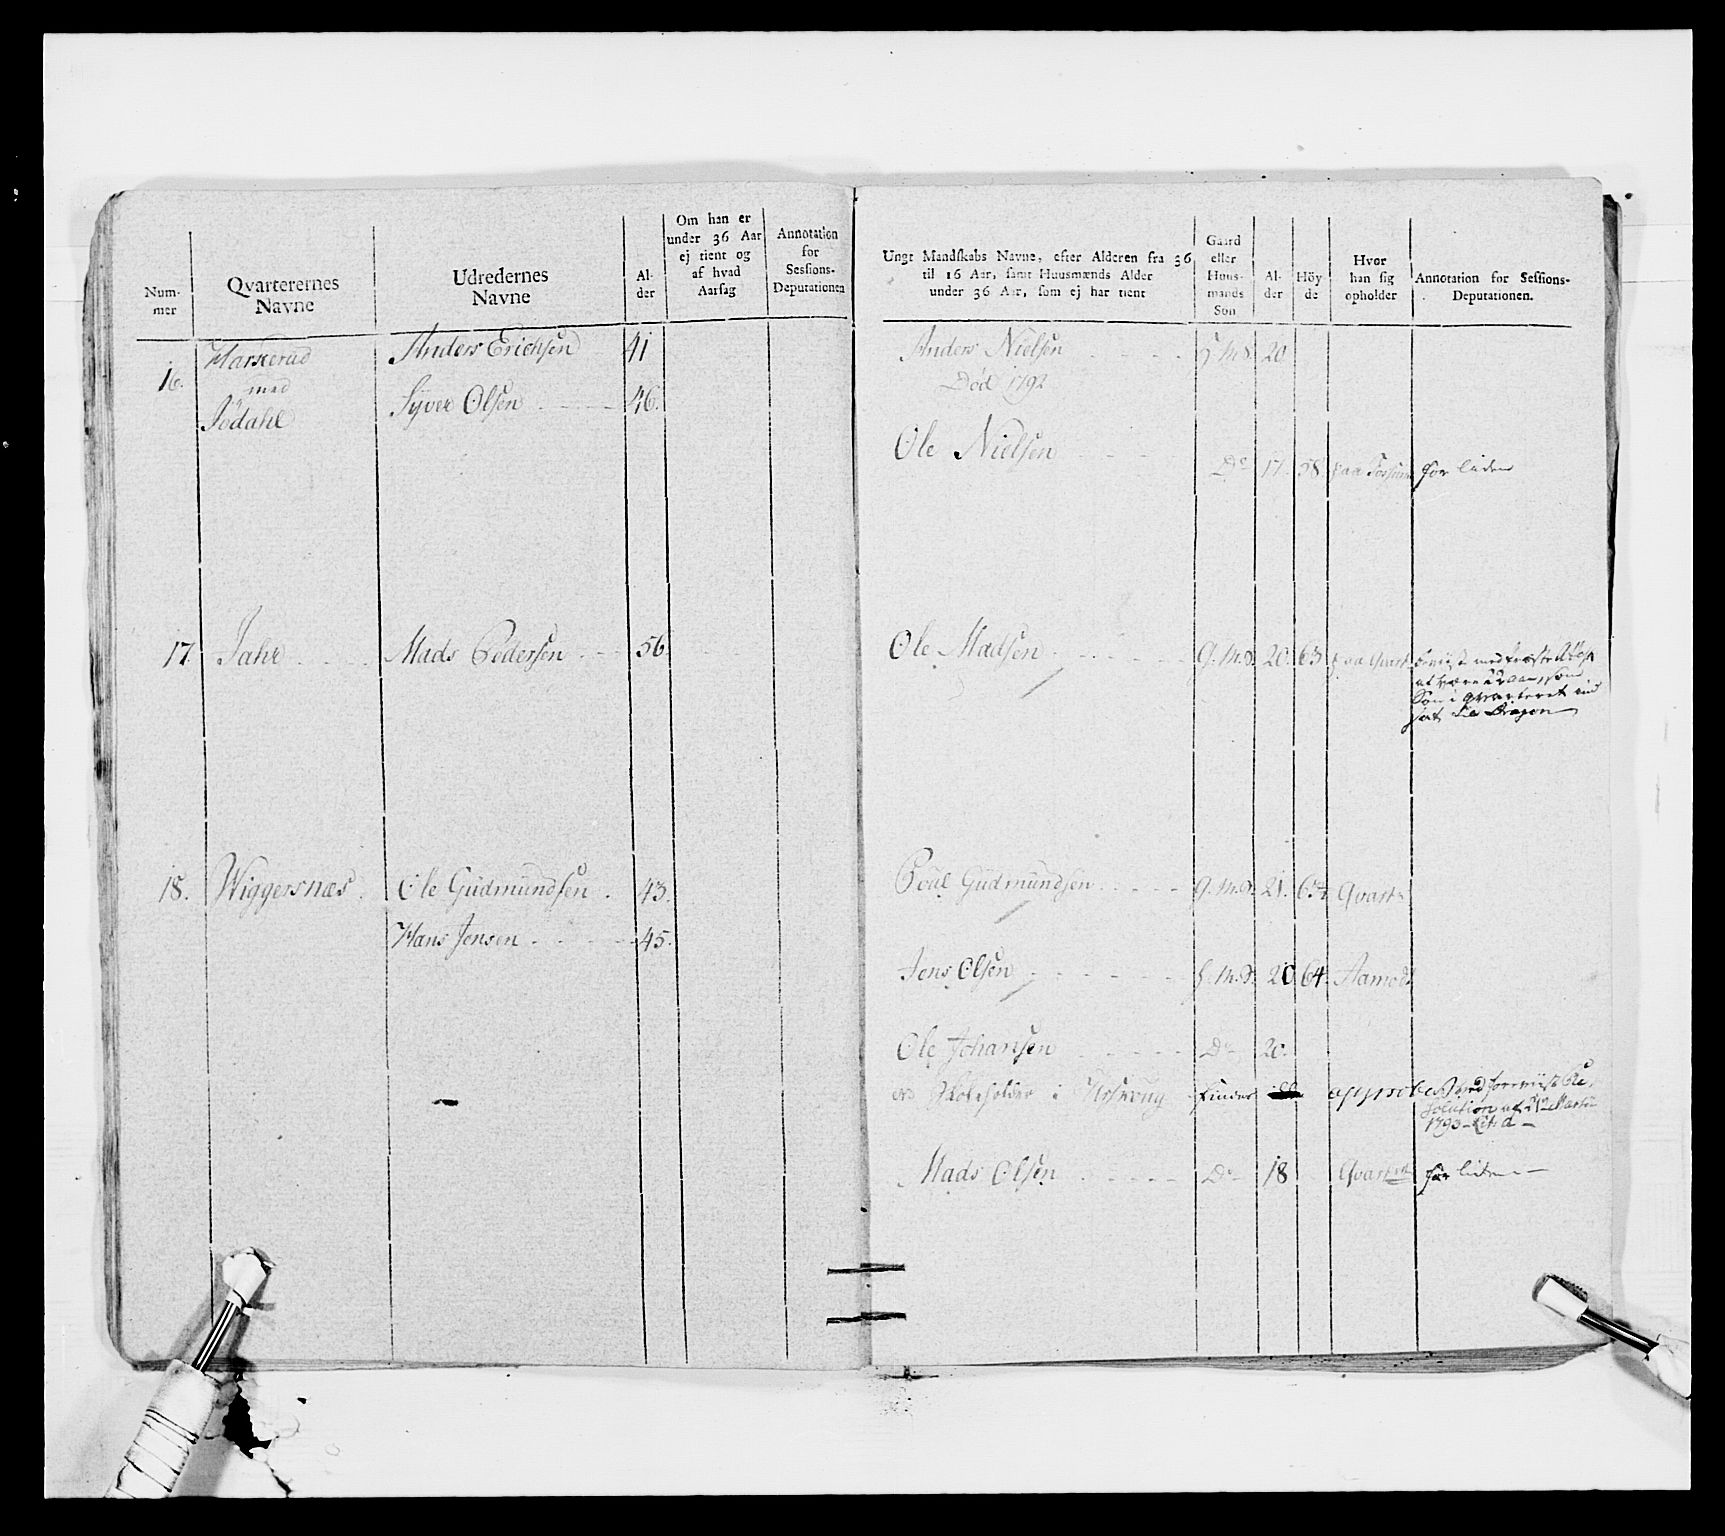 Num-
mer
Qvarterernes
Navne
Udredernes
Navne
Al-
der
Om han er
under 36 Aar
ej tient og
af hvad
Aarsag
Annotation
for
Sessions-
Deputationen
16.
Harkerud
med
Jödahl
Anders Erichsen 41
Syver Olsen 46.
17. Jahr Mads Pedersen 56
18. Wiggersnæs. Ole Gudmundsen. 43.
Hans Jensen 45.
Ungt Mandskabs Navne, efter Alderen fra 36
til 16 Aar, samt Huusmænds Alder
under 36 Aar, som ej har tient
Gaard
eller
Huus-
mands
Son
Al-
der
Höy-
de
Hvor
han sig
opholder
Annotation for Sessions-
Deputationen.
Anders Nielsen 20
Död 1792
Ole Nielsen
Do 17. 58 paa Fossum for liden
Ole Madsen G.M.S. 20. 63 paa Qvart
at være
Son i Qvarteret
sat til Dragon
Poul Gudmundsen G.M.S. 21. Qvart
Jens Olsen 20 64. Aamodt
Ole Johansen Do 20.
er Skoleholder i Urskoug
solution af Martii
1793 Lit: a
Mads Olsen Do 18 Qvart for liden